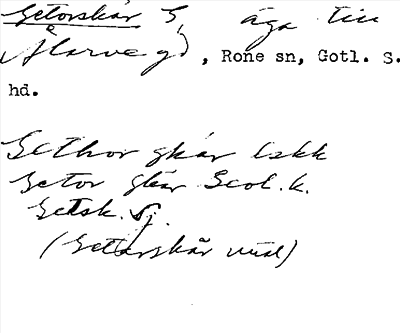 Getorskär S, äga till
Ålarve gd, Rone sn, Gotl. S.
hd.
Gethor skär Eskk
Getor skär Geol. k.
Getsk. Sj.
(Getorskär uttal)